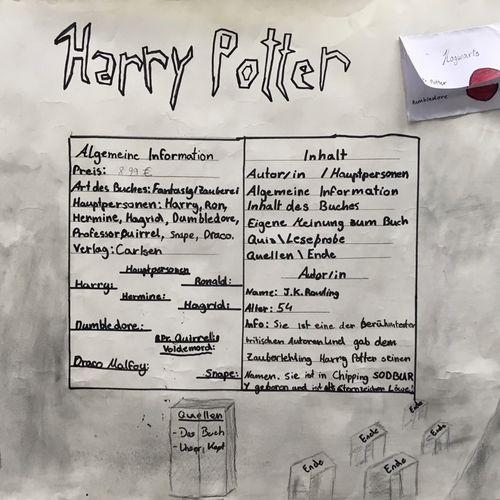 Harry Potter
Hogwarts
Potter
Dumbledore
Algemeine Information
Preis: 8.99 €
Art des Buches: Fantasig/Zauberei
Hauptpersonen: Harry, Ron,
Hermine, Hagrid, Dumbledore,
Professor Quirrel, Snape, Draco.
Verlag: Carlsen
Hauptpersonen
Harry:
Ronald:
Hermine:
Hagrid:
Dumbledore:
Pr. Quirrells
Voldemord:
Draco Malfoy:
Snape:
Inhalt
Autor/in / Hauptpersonen
Algemeine Information
Inhalt des Buches
Eigene Meinung zum Buch
Quiz \ Leseprobe
Quellen \ Ende
Autor/in
Name: J.K. Rowling
Alter: 54
Info: Sie ist eine der Berühmtesten
britischen Autoren. Und gab dem
Zauberlehling Harry Potter seinen
Namen. Sie ist in Chipping SODBUR
Y geboren und ist Sternzeichen Löwe!
Quellen
- Das Buch
- Unser Kopf
Ende
Ende
Ende
Ende
Ende